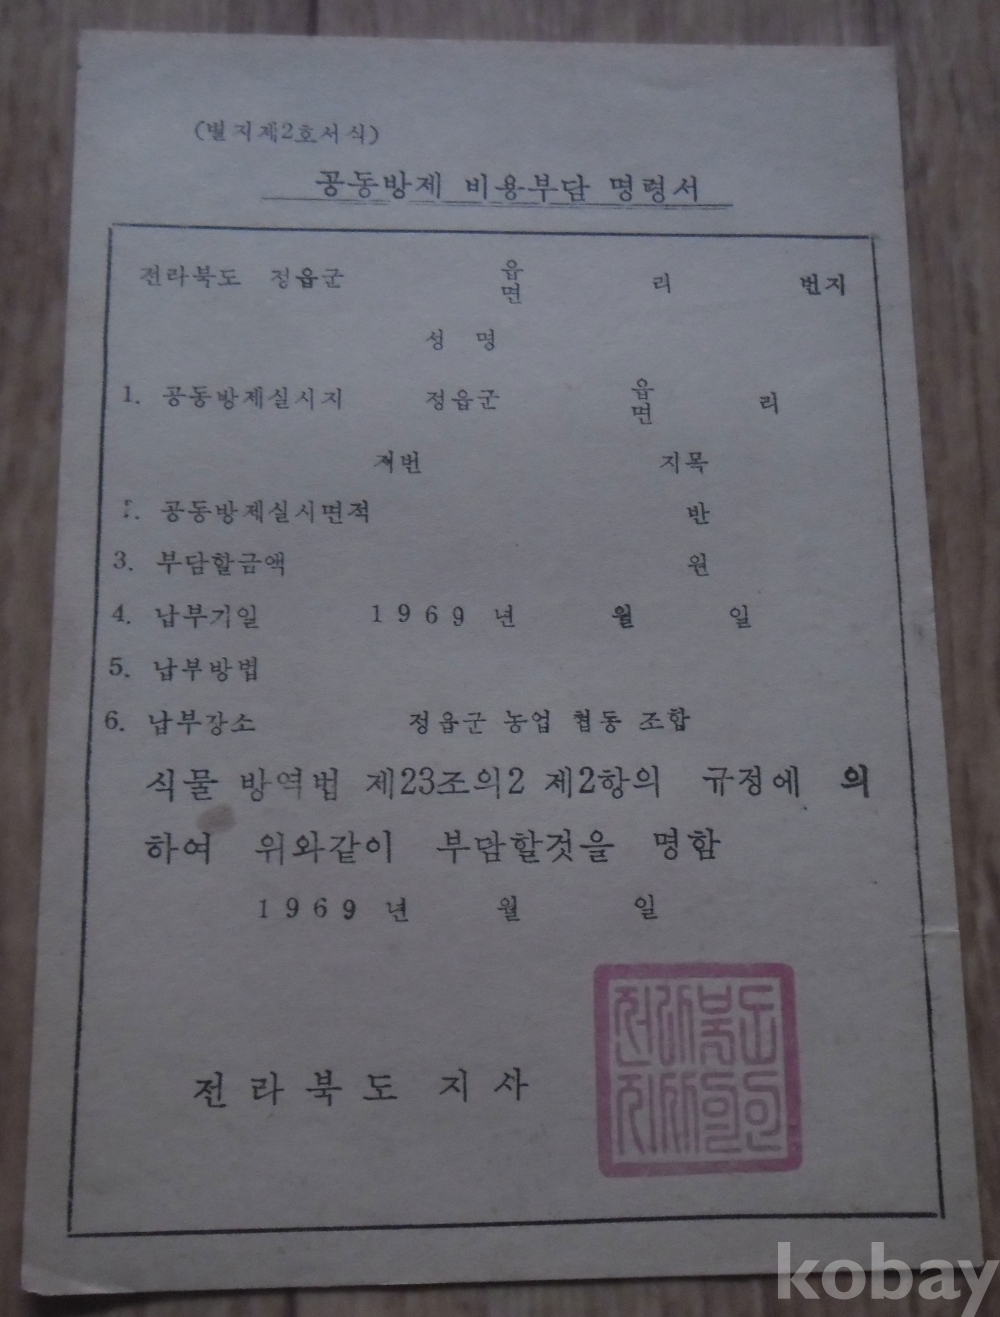 (별지제2호서식)
공동방제 비용부담 명령서
전라북도 정읍군 읍면 리 번지
성 명
1. 공동방제실시지 정읍군 읍면 리
지번 지목
2. 공동방제실시면적 반
3. 부담할금액 원
4. 납부기일 1969년 월 일
5. 납부방법
6. 납부장소 정읍군 농업 협동 조합
식물 방역법 제23조의2 제2항의 규정에 의
하여 위와같이 부담할것을 명함
1969년 월 일
전라북도 지사
전라북도
지사의인
kobay